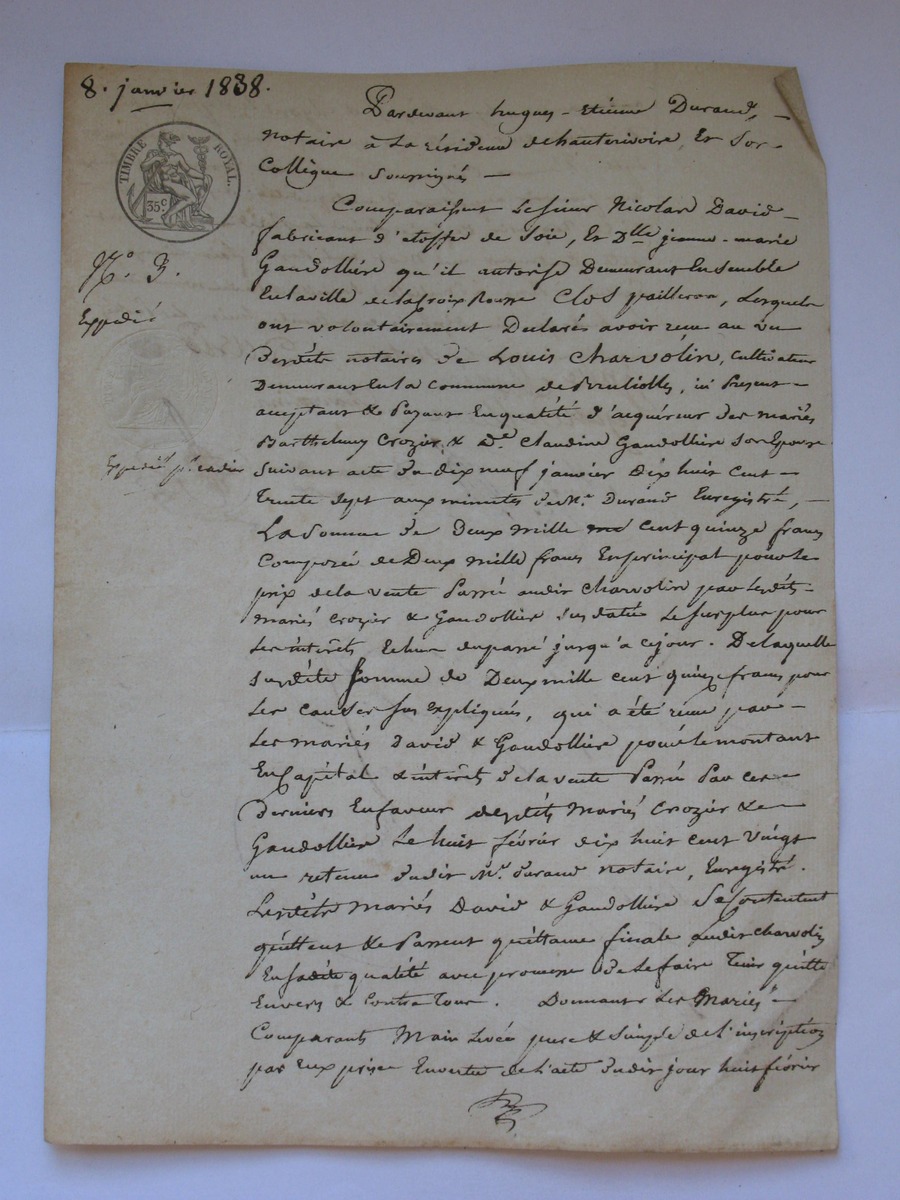 8. janvier 1838.
TIMBRE ROYAL.
35c
N.o 3.
Expédié
Expédié
Pardevant hugues-etienne Durand,
notaire à La résidence de hauterivoire, Et Son
Collègue Soussignés —
Comparaissent Le Sieur Nicolas David
fabricant d'étoffes de Soie, Et Dlle jeanne-marie
Gaudollière qu'il autorise Demeurant Ensemble
En la ville de la croix Rousse Clos pailleron, Lesquels
ont volontairement Declarés avoir reçu au vu
Desdits notaires De Louis Charvolin, Cultivateur
Demeurant En la Commune de Brullioles, ici Present
acceptant & Payant En qualité d'acquéreur des mariés
Barthelemy Crozier & De. Claudine Gaudollière Son Epouse
Suivant acte du dix neuf janvier Dix huit Cent
Trente Sept aux minutes de Me. Durand Enregistré, —
La Somme de Deux mille cent quinze francs
Composée de Deux mille francs En principal pour le
prix de la vente Passée audit Charvolin par lesdits
mariés Crozier & Gaudollière Sus datée Le Surplus pour
Les intérêts Echus du passé jusqu'a ce jour. De laquelle
Susdite Somme de Deux mille cent quinze francs pour
Les Causes Sus Expliquées, qui a été reçue par
Les mariés David & Gaudollière pour le montant
En Capital & intérêts de la vente Passée Par ces
Derniers En faveur desdits Mariés Crozier &
Gaudollière Le huit février dix huit cent vingt
un retenu dudit Me. Durand notaire, Enregistré.
Lesdits Mariés David & Gaudollière Se Contentent
quittent & Passent quittance finale audit Charvolin
En Sadite qualité avec promesse De Le faire Tenir quitte
Envers & Contre Tous. Donnant Les Mariés
Comparants Main Levée pure & Simple de l'inscription
par Eux prise En vertu de l'acte dudit jour huit février